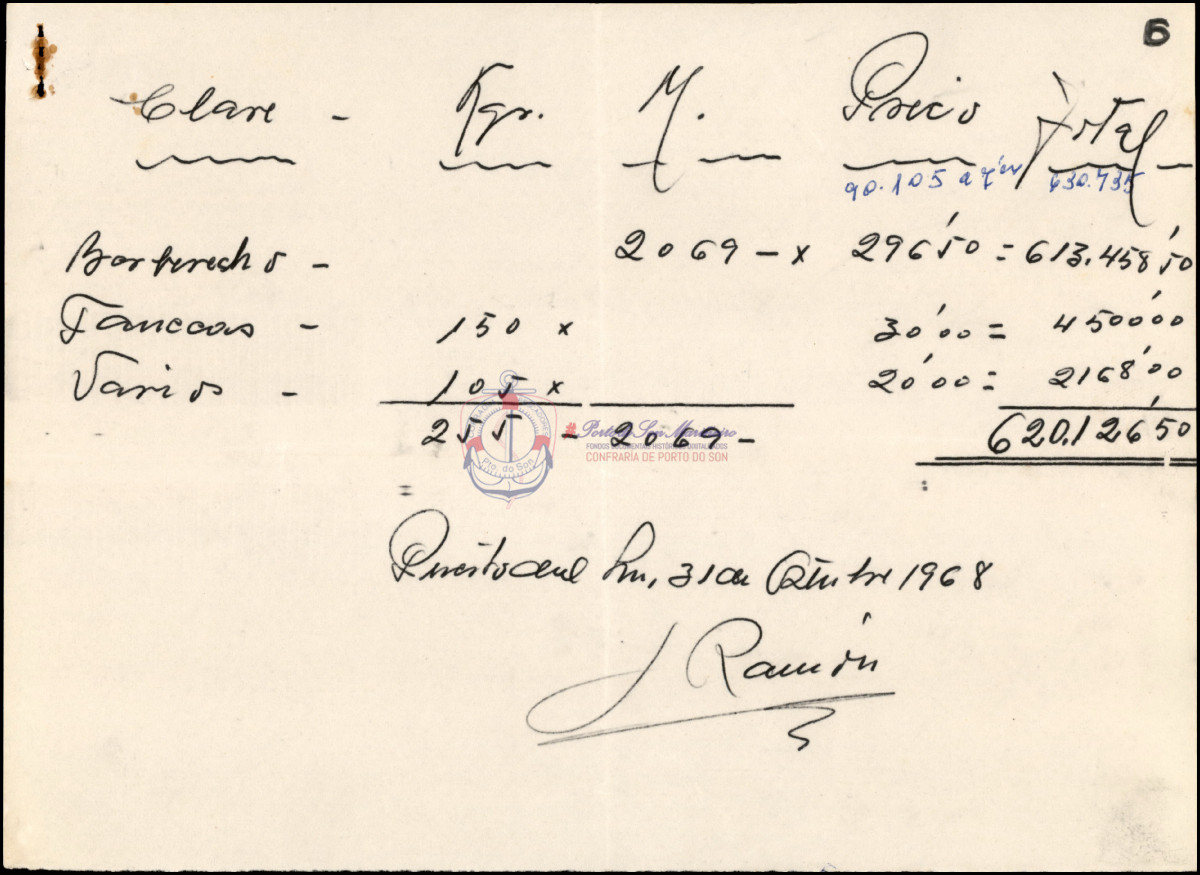 5
Clase - Kgr. M. Precio Total
90.105 a 7'00 630.735
Berberecho - 2069 - x 296'50 = 613.458'50
Fanecas - 150 x 30'00 = 4500'00
Varios - 105 x 20'00 = 2168'00
255 - 2069 - 620.126'50
#Porto do Son Mariñeiro
FONDOS DOCUMENTAIS HISTÓRICOS DIXITALIZADOS
CONFRARÍA DE PORTO DO SON
Pto. do Son
Puerto del Son, 31 de Octubre 1968
J Ramón